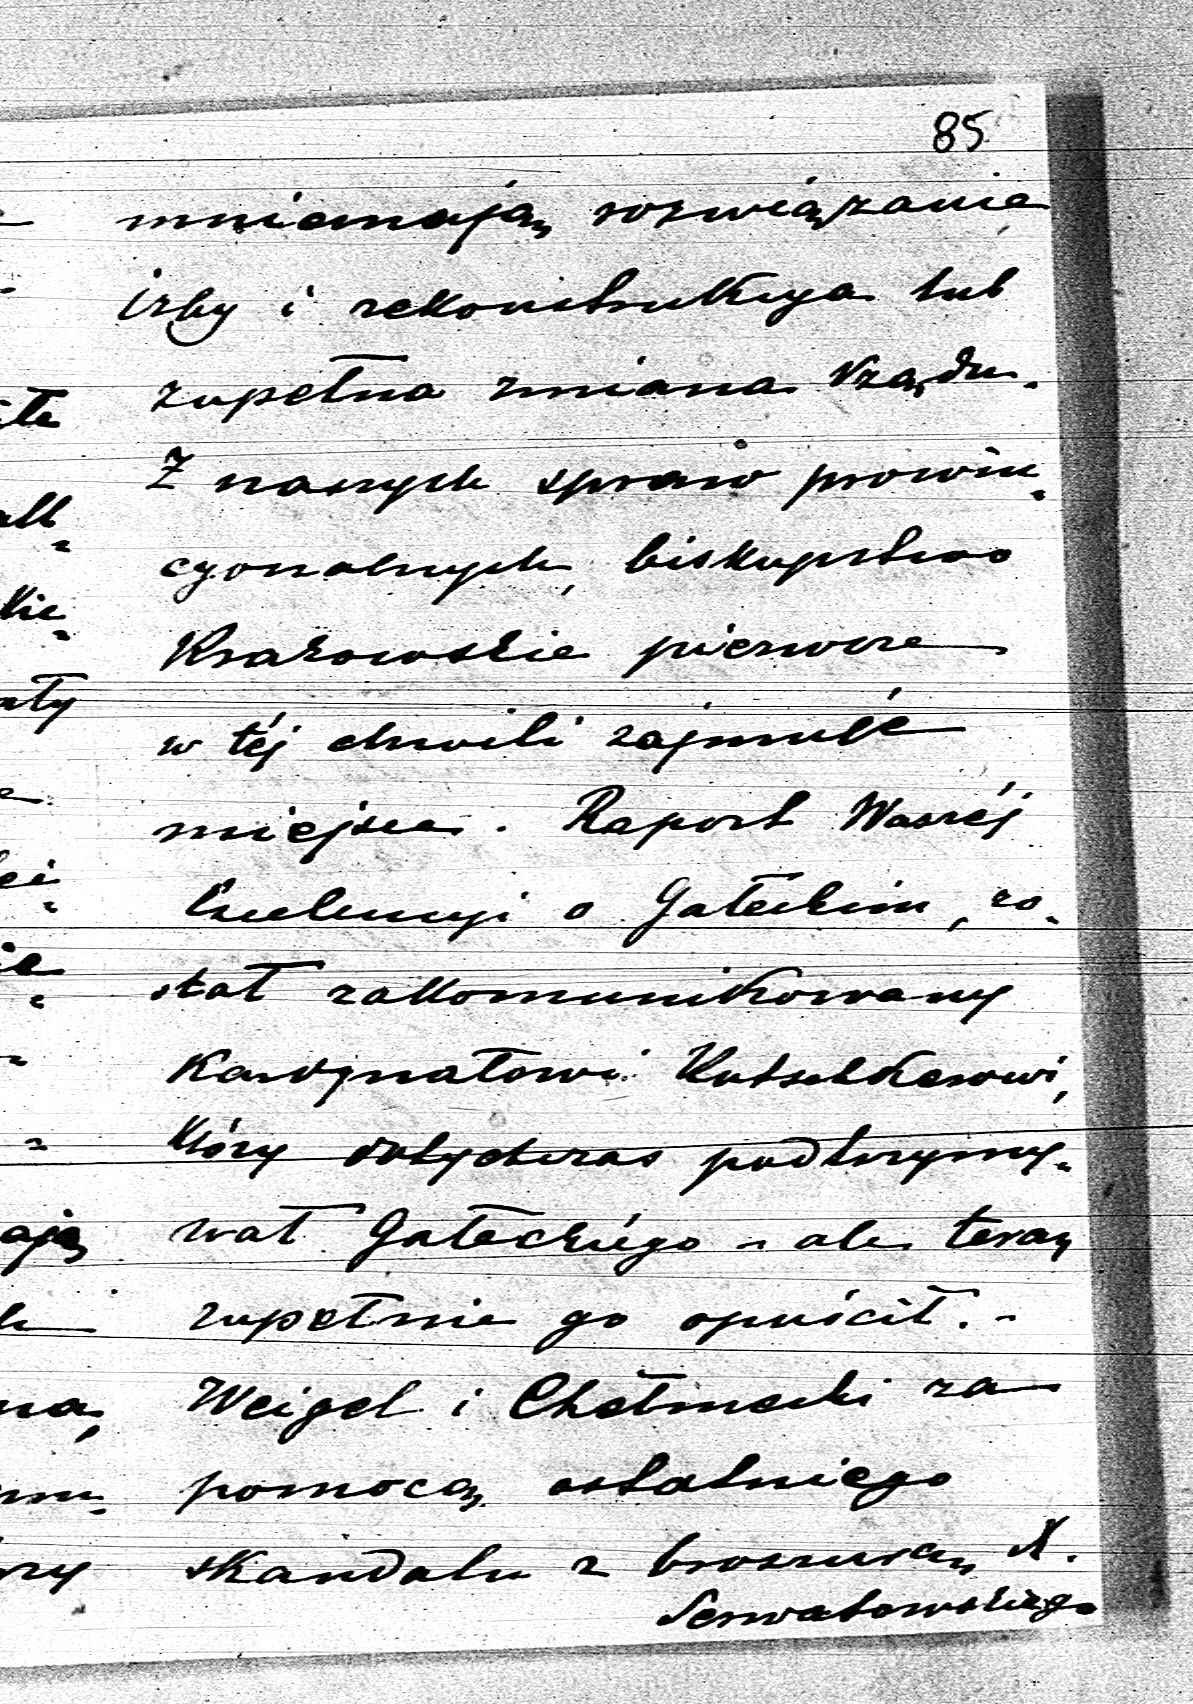 85
mniemają, rozwiązanie
izby i rekonstrukcya lub
zupełna zmiana rządu.
Z naszych spraw prowin„
cyonalnych, biskupstwo
Krakowskie pierwsze
w téj chwili zajmuje
miejsce. Raport Waszéj
Excelencyi o Gałeckim, zo„
stał zakomunikowany
Kardynałowi Kutschkerowi,
który dotychczas podtrzymy„
wał Gałeckiégo - ale teraz
zupełnie go opuścił. -
Weigel i Chełmecki za
pomocą ostatniego
skandalu z broszurą X.
Serwatowskiego